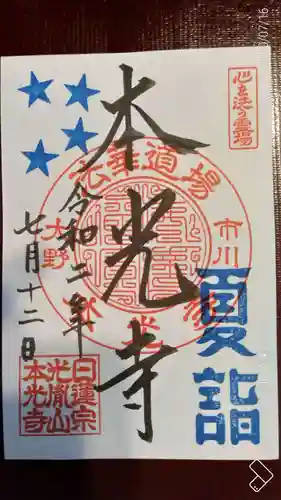 心を洗う霊場
本光寺
法華道場
市川
大野
本光寺
令和二年
七月十二日
夏詣
日蓮宗
光胤山
本光寺
07/16